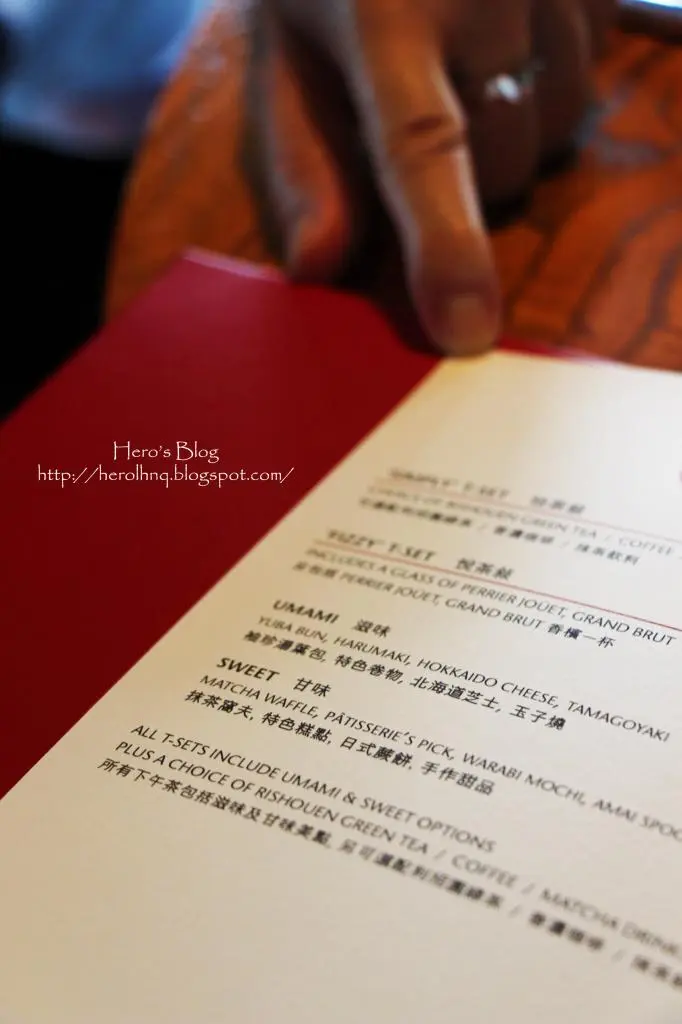 Hero's Blog
http://herolhnq.blogspot.com/
"SIMPLY" T-SET 悅茶敍
CHOICE OF RISHOUEN GREEN TEA / COFFEE /
"FIZZY" T-SET 悅茶敍
INCLUDES A GLASS OF PERRIER JOUET, GRAND BRUT
另包括 PERRIER JOUET, GRAND BRUT 香檳一杯
UMAMI 滋味
YUBA BUN, HARUMAKI, HOKKAIDO CHEESE, TAMAGOYAKI
袖珍湯葉包, 特色卷物, 北海道芝士, 玉子燒
SWEET 甘味
MATCHA WAFFLE, PÂTISSERIE'S PICK, WARABI MOCHI, AMAI SPOO
抹茶窩夫, 特色糕點, 日式蕨餅, 手作甜品
ALL T-SETS INCLUDE UMAMI & SWEET OPTIONS
PLUS A CHOICE OF RISHOUEN GREEN TEA / COFFEE / MATCHA DRINK
所有下午茶包括滋味及甘味美點, 另可選配利招園綠茶 / 香濃咖啡 / 抹茶